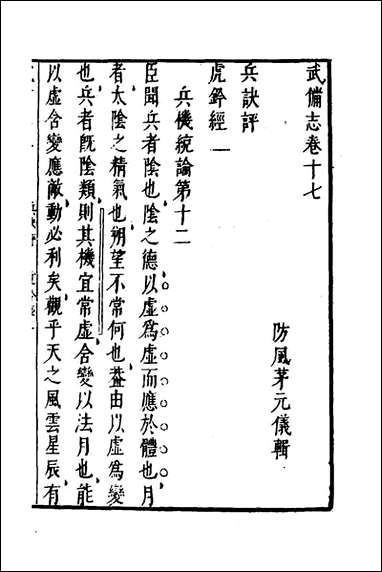 武備志卷十七
防風茅元儀輯
兵訣評
虎鈐經一
兵機統論第十二
臣聞兵者陰也陰之德以虛爲虛而應於體也月
者太陰之精氣也朔望不常何也葢由以虛爲變
也兵者旣陰類則其機宜常虛含變以法月也能
以虛含變應敵動必利矣觀乎天之風雲星辰有